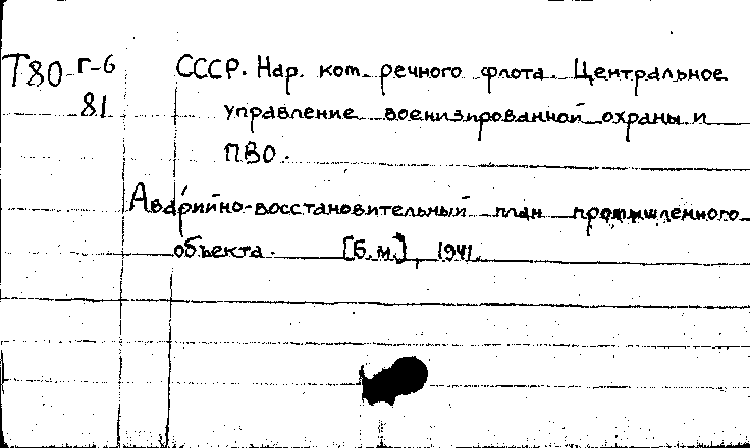 Т80-г-6 СССР. Нар. ком. речного флота. Центральное
81 управление военизированной охраны и
ПВО.
Аварийно-восстановительный план промышленного
объекта. [Б.м.], 1941.